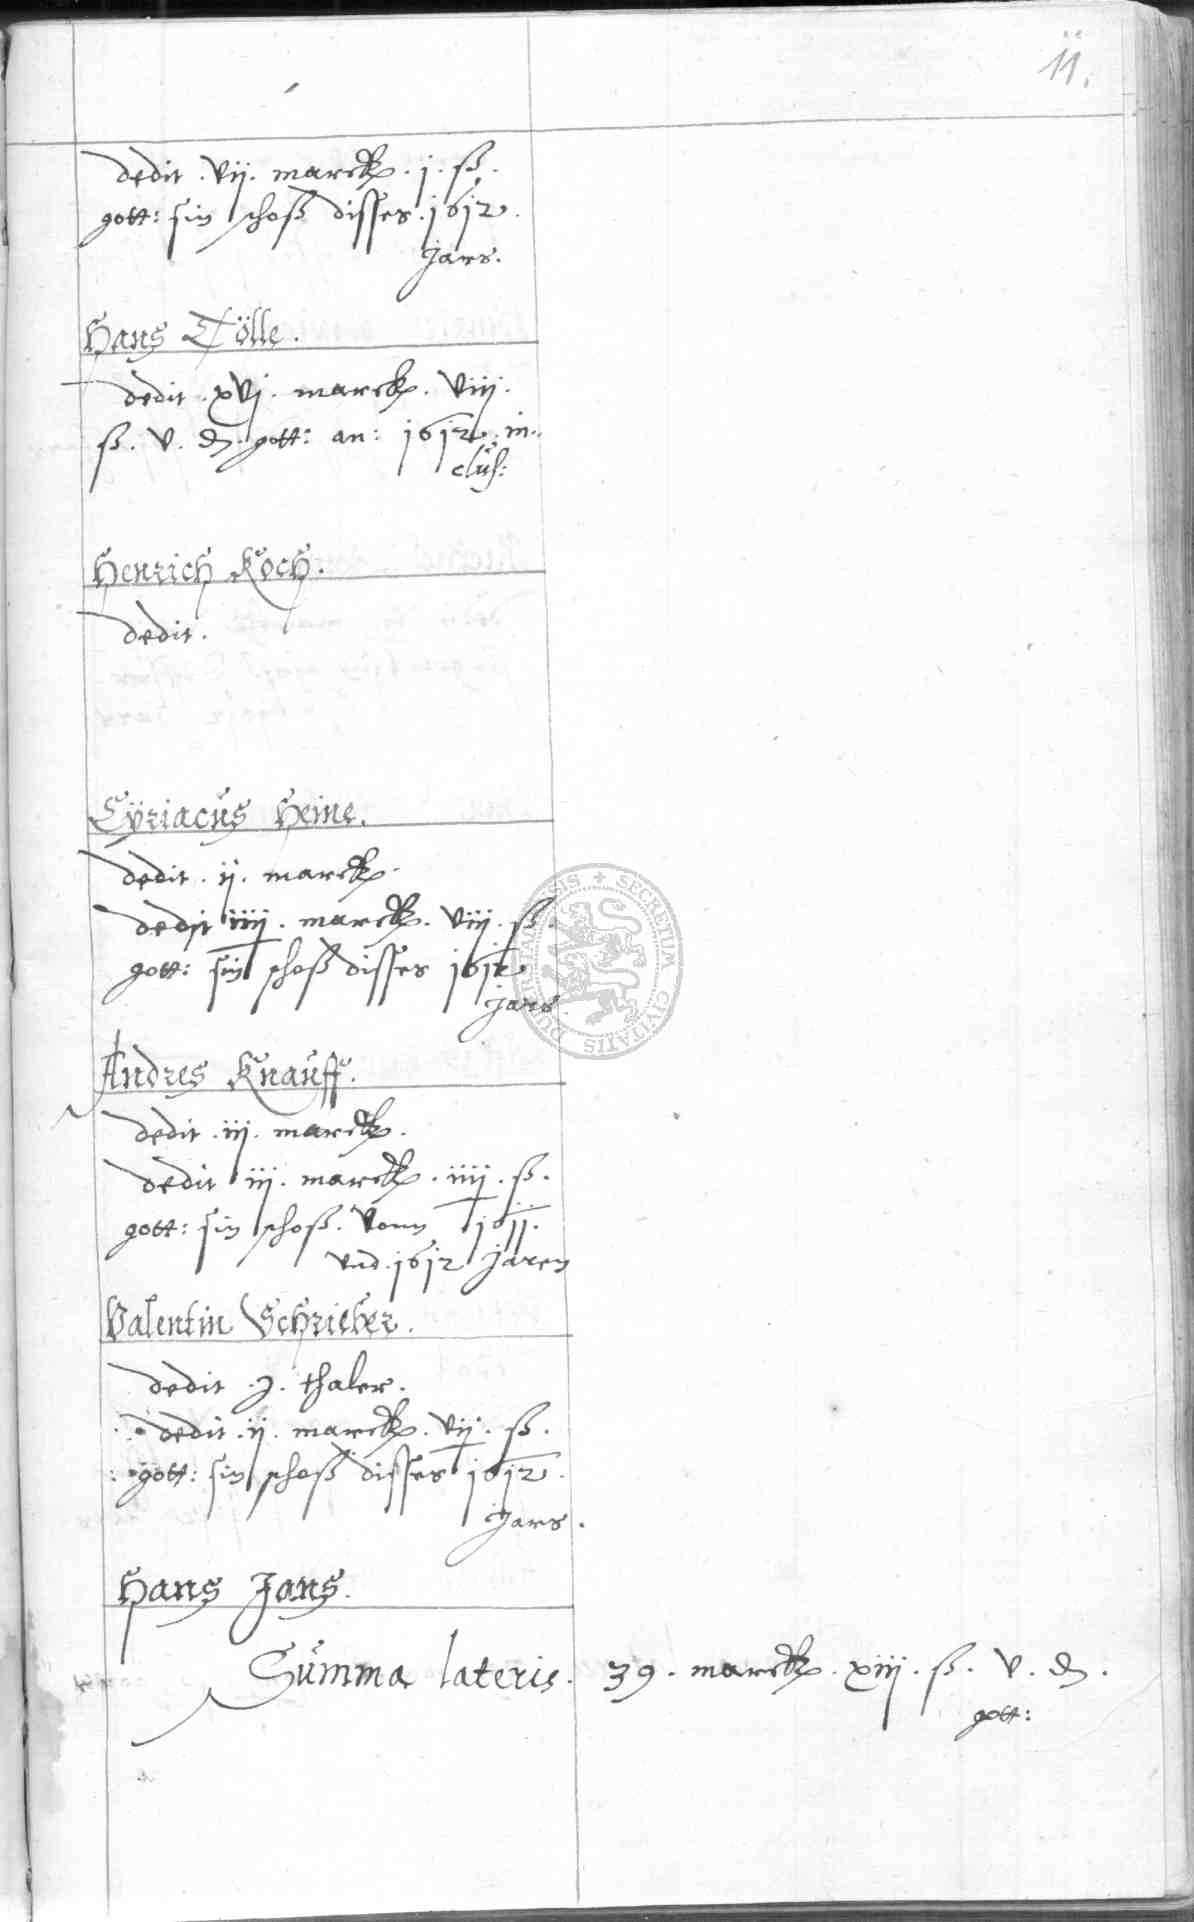 11.
dedit . vij . marck . j . ß .
gott: sin schoß disses . 1612 .
Jars .
Hans Tölle .
dedit . xvj . marck . viij .
ß . v . ₰ . gott: an: 1612 . in-
clus:
Henrich Koch .
dedit .
Cÿriacus Heine .
dedit . ij . marck .
dedit iiij . marck . viij . ß .
gott: sin schoß disses 1612
Jars
Andres Knauff .
dedit . iij . marck .
dedit iij . marck . iiij . ß .
gott: sin schoß . vonn 1611 .
vnd . 1612 Jaren
Valentin Schrieber .
dedit . j . thaler .
dedit . ij . marck . vij . ß .
gott: sin schoß disses 1612 .
Jars .
Hans Jans .
Summa lateris . 39 . marck . xiij . ß . v . ₰ .
gott:
SECRETUM CIVITATIS DUDERSTADENSIS